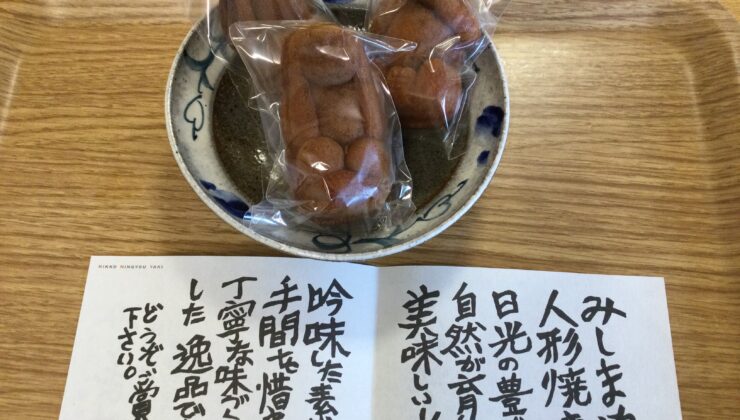 NIKKO NINGYOU YAKI
みしま
人形焼
日光の豊
自然が育
美味しい
吟味した素
手間を惜
丁寧な味づ
した逸品で
どうぞご賞
下さい。